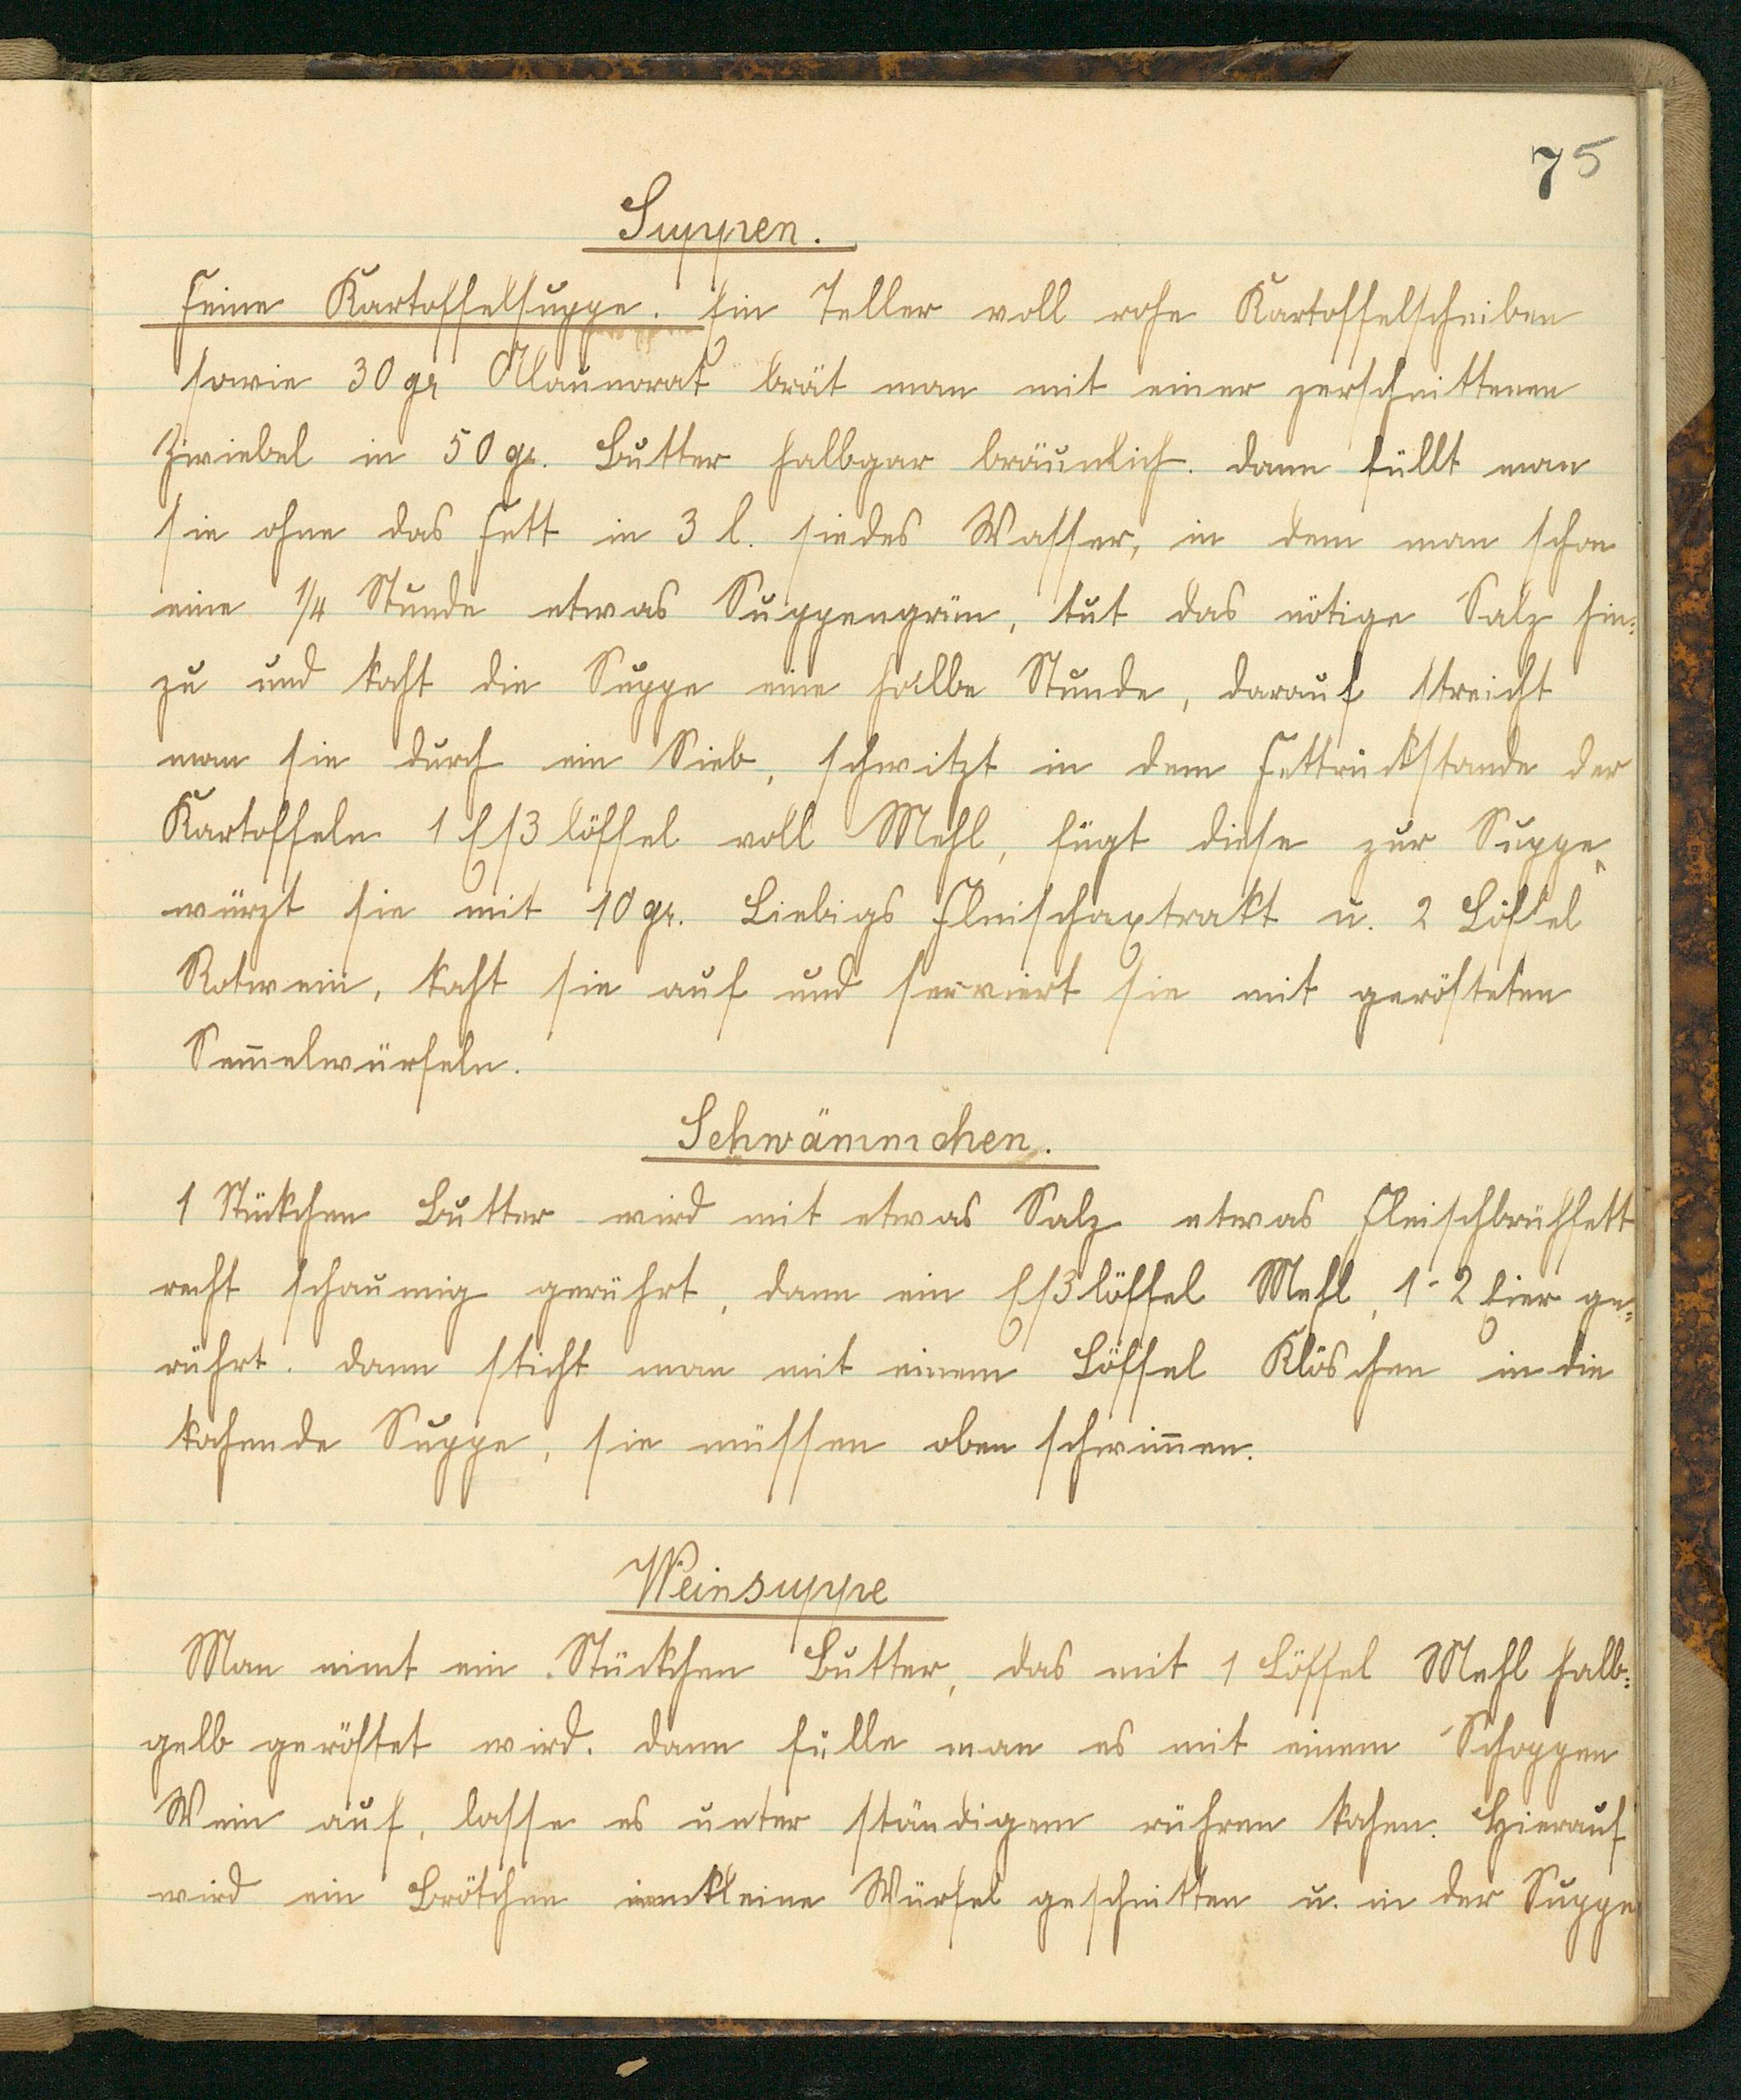 75
Suppen.
Feine Kartoffelsuppe. Ein Teller voll rohe Kartoffelscheiben
sowie 30 gr Alaunorat brät man mit einer zerschnittenen
Zwiebel in 50 gr. Butter halbgar bräunlich. dann füllt man
sie ohne das Fett in 3 l. siedes Wasser, in dem man schon
eine 1/4 Stunde etwas Suppengrün, tut das nötige Salz hin:
zu und kocht die Suppe eine halbe Stunde, darauf streicht
man sie durch ein Sieb, schwitzt in dem Fettrückstande der
Kartoffeln 1 Eßlöffel voll Mehl, fügt diese zur Suppe,
würzt sie mit 10 gr. Liebigs Fleischextrakt u. 2 Löffel
Rotwein, kocht sie auf und serviert sie mit gerösteten
Sem̅elwürfeln.
Schwämmchen.
1 Stückchen Butter wird mit etwas Salz etwas Fleischbrühfett
recht schaumig gerührt, dann ein Eßlöffel Mehl, 1-2 Eier ge:
rührt. dann sticht man mit einem Löffel Klöschen in die
kochende Suppe, sie müssen oben schwim̅en.
Weinsuppe
Man nimt ein Stückchen Butter, das mit 1 Löffel Mehl halb:
gelb geröstet wird. dann fülle man es mit einem Schoppen
Wein auf, lasse es unter ständigem rühren kochen. Hierauf
wird ein Brötchen in kleine Würfel geschnitten u. in der Suppe